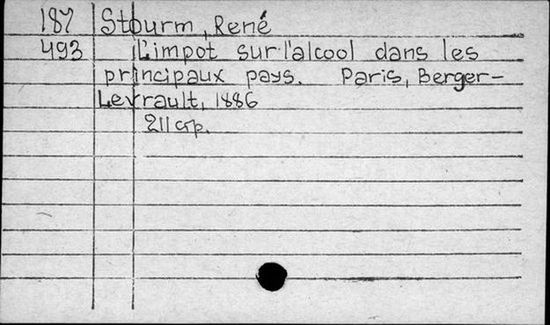 187 Stourm, René
493 L'impot sur l'alcool dans les
principaux pays. Paris, Berger-
Levrault, 1886
211 p.